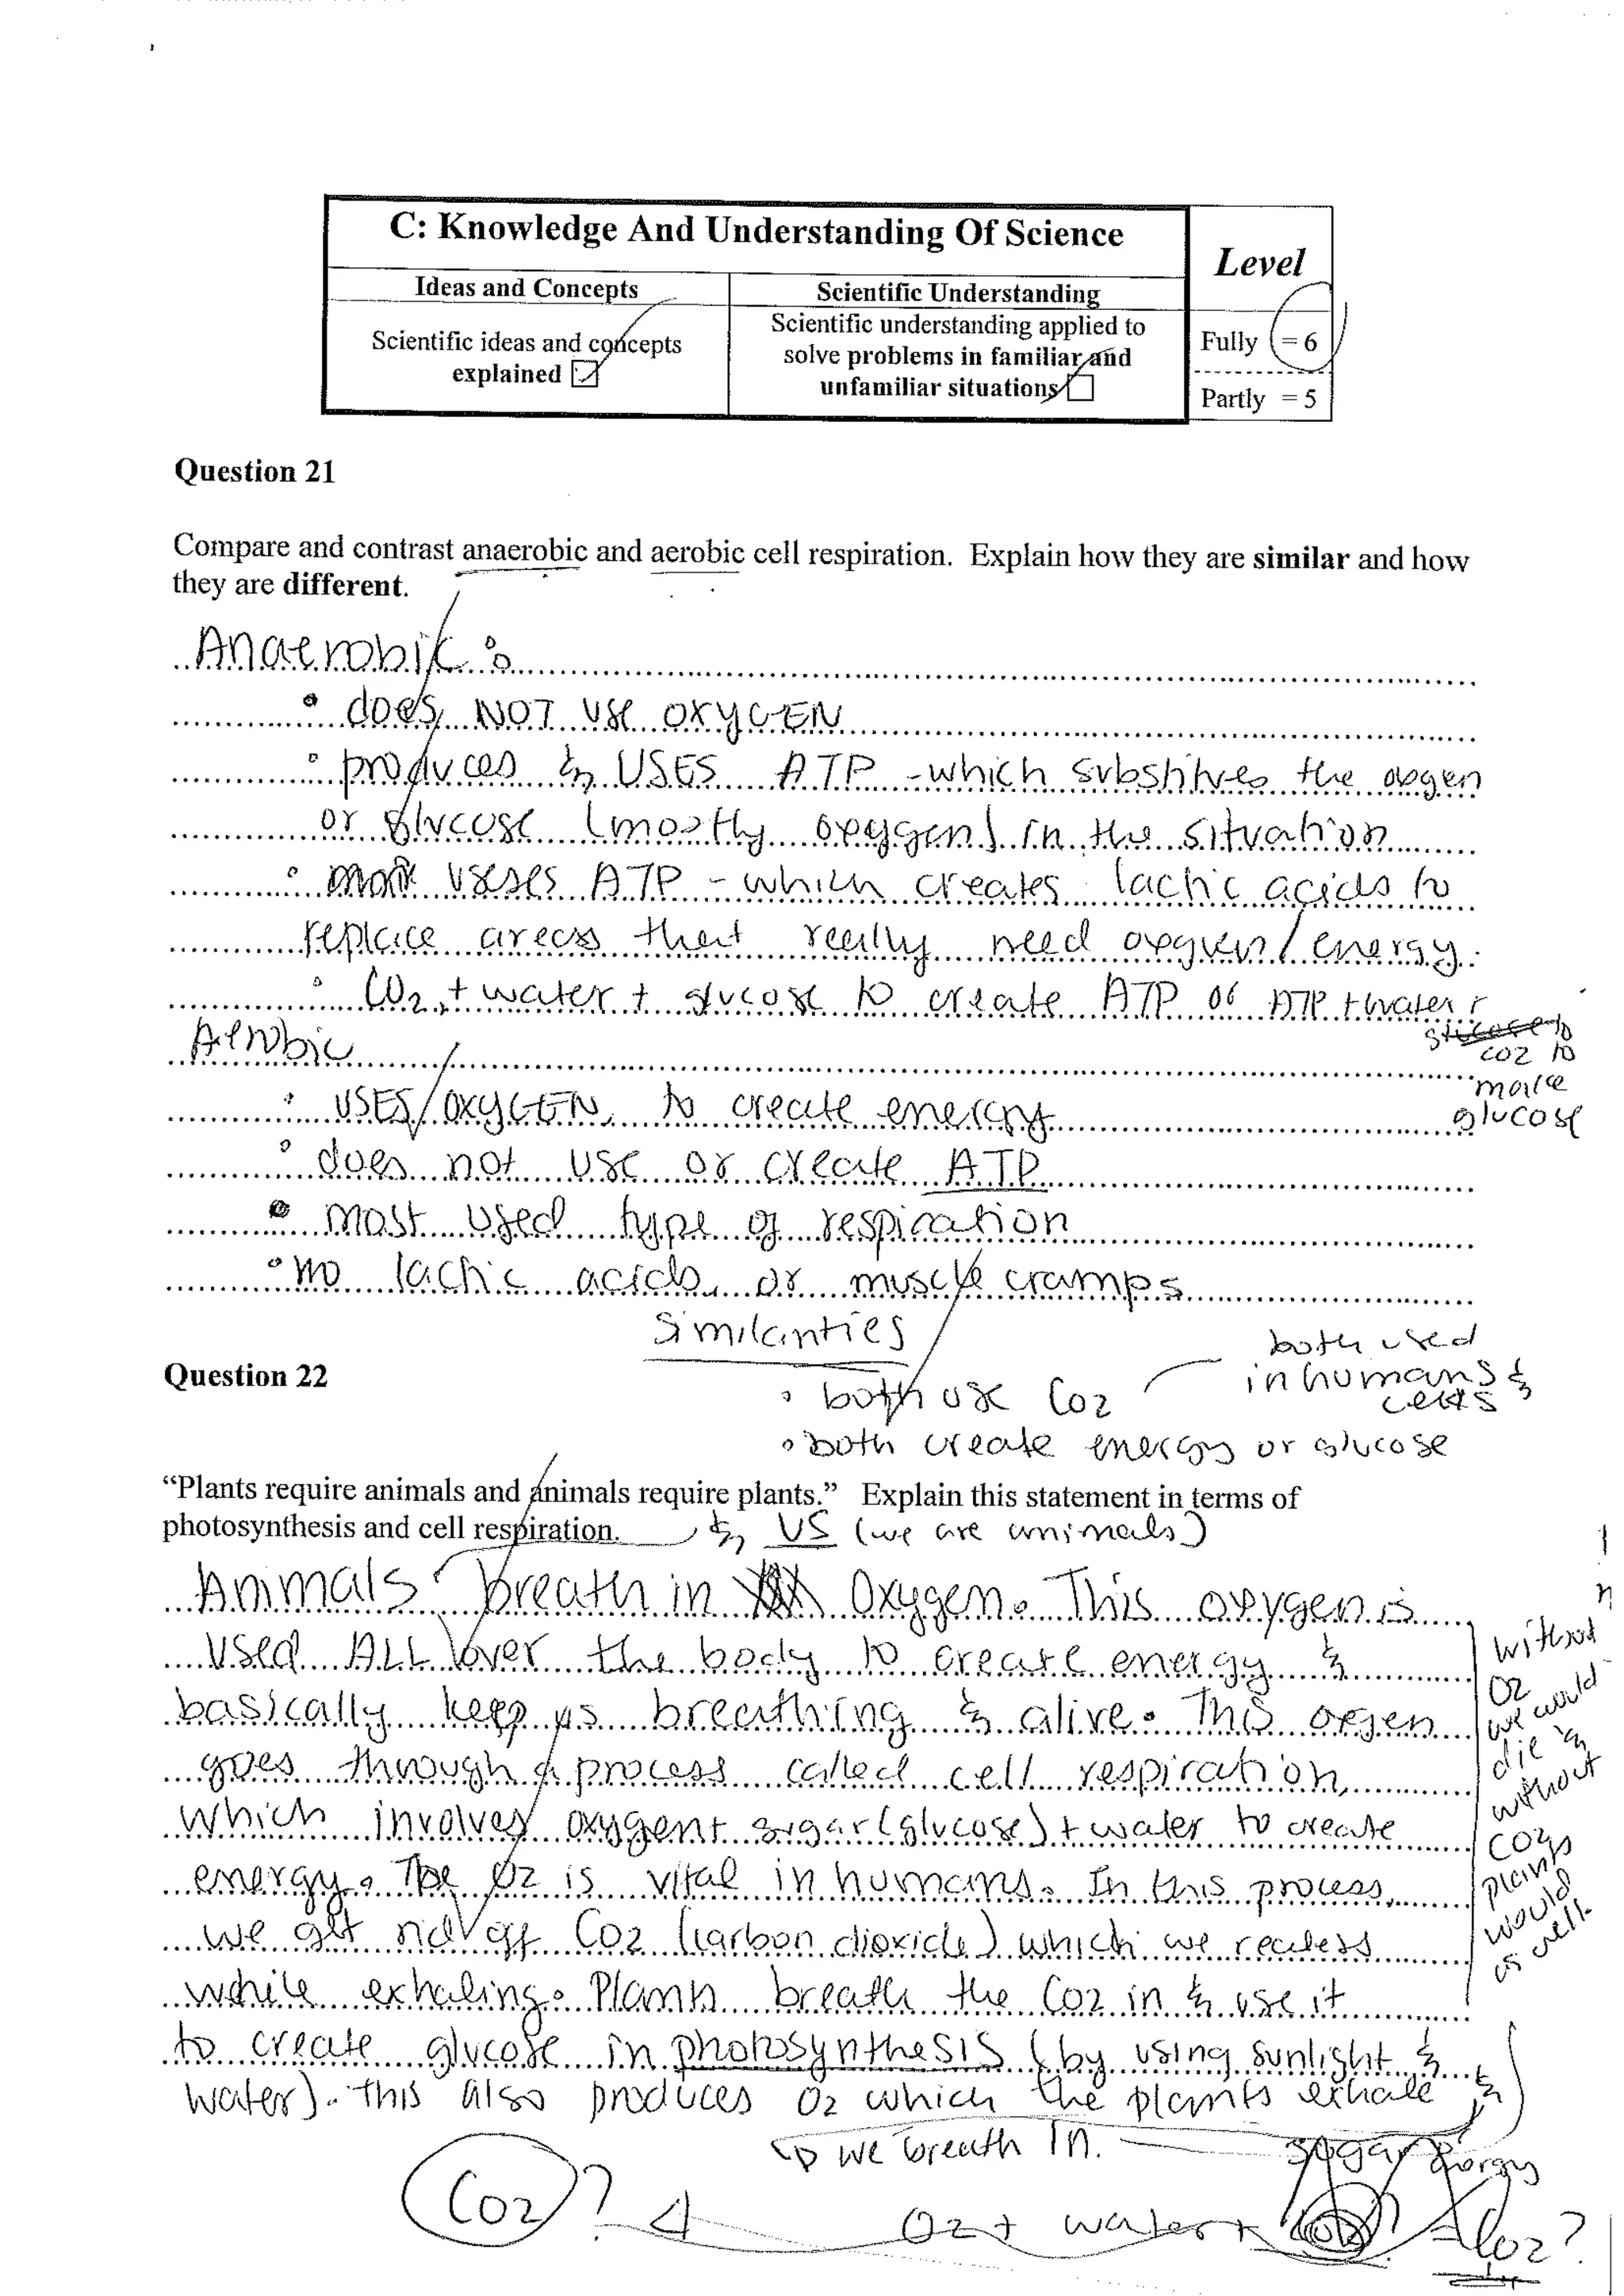 C: Knowledge And Understanding Of Science
Level
Ideas and Concepts
Scientific Understanding
Scientific ideas and concepts
explained
Scientific understanding applied to
solve problems in familiar and
unfamiliar situations
Fully = 6
Partly = 5
Question 21
Compare and contrast anaerobic and aerobic cell respiration. Explain how they are similar and how
they are different.
Anaerobic:
• does NOT use OXYGEN
• produces & USES ATP - which the
or glucose (mostly oxygen) in the situation
• ATP - which creates lactic acids to
replace areas that really need oxgyen/energy.
• CO2 + water + glucose to create ATP or ATP + water +
CO2 to
make
glucose
Aerobic
• USES OXYGEN, to create energy
• does not use or create ATP
• most used type of respiration
• no lactic acids, or muscle cramps
Similarities
• both use CO2
both used
in humans &
cells
• both create energy or glucose
Question 22
“Plants require animals and animals require plants.” Explain this statement in terms of
photosynthesis and cell respiration.
& US (we are animals)
Animals breath in Oxygen. This oxygen is
used ALL over the body to create energy &
basically keep us breathing & alive. This
goes through a process called cell respiration,
which involves oxygen + sugar (glucose) + water to create
energy. The O2 is vital in humans. In this process,
we get rid off CO2 (carbon dioxide) which we
while exhaling. Plants breath the CO2 in & use it
to create glucose in photosynthesis (by using sunlight &
water). This also produces O2 which the plants exhale &
we breath in.
without
O2
we would
die &
without
CO2
plants
would
as well.
sugar
CO2?
O2 + water +
= CO2?